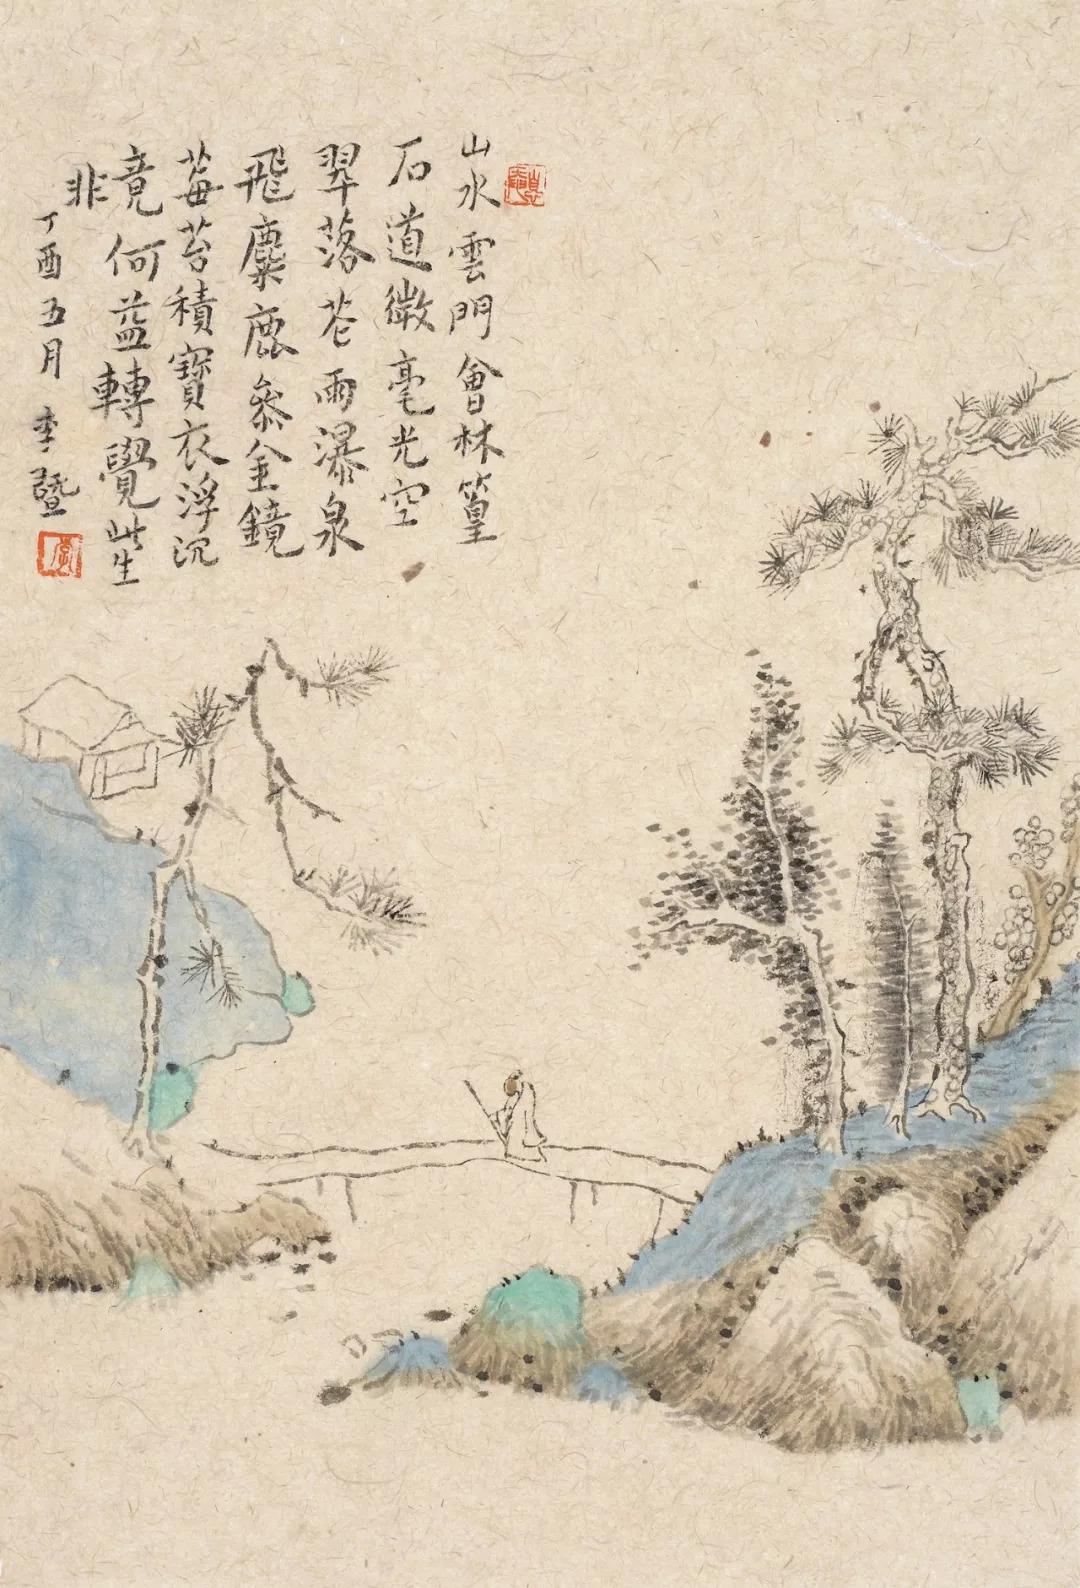 山水雲門會林篁
石道微毫光空
翠落花雨瀑泉
飛麋鹿參金鏡
莓苔積寶衣浮沉
竟何益轉覺此生
非
丁酉五月 李曁